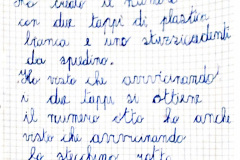 Ho creato il numero
con due tappi di plastica
bianca e uno stuzzicadenti
da spiedino.
Ho visto che avvicinando
i due tappi si ottiene
il numero otto ho anche
visto che avvicinando
lo stecchino sotto